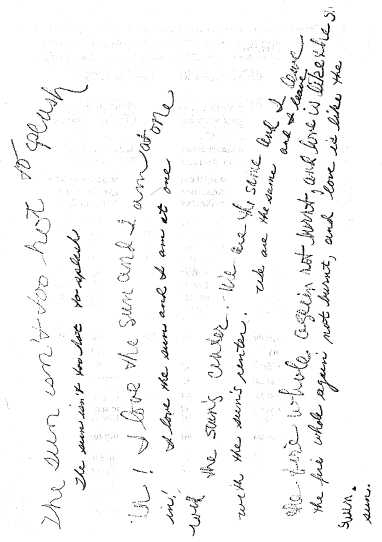 The sun isn't too hot to splash
The sun isn't too hot to splash
in! I love the sun and I am at one
in! I love the sun and I am at one
with the sun's center. We are the same and I leave
with the sun's center. We are the same and I leave
the fire whole again not burnt, and love is like the
the fire whole again not burnt, and love is like the
sun.
sun.